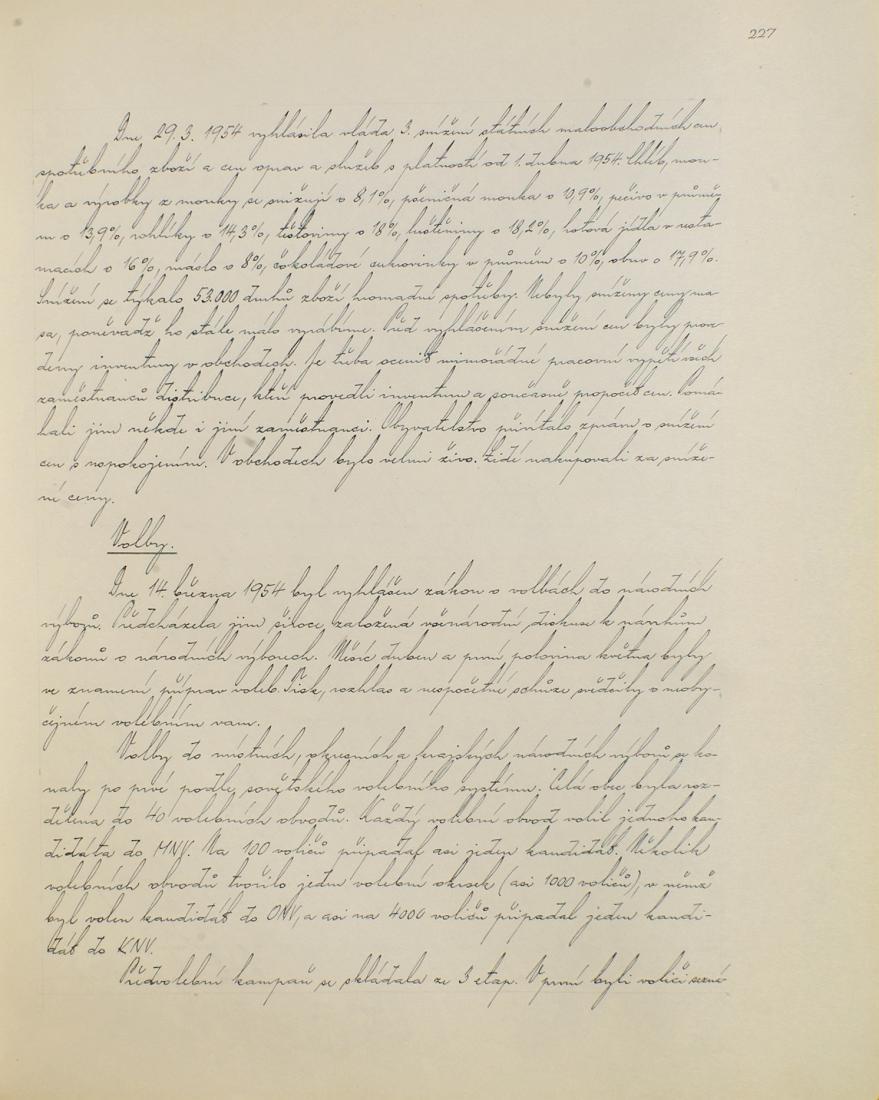 227
Dne 29. 3. 1954 vyhlásila vláda 3. snížení státních maloobchodních cen
spotřebního zboží a cen oprav a služeb s platností od 1. dubna 1954. Chléb, mou-
ka a výrobky z mouky se snižují o 8,1%, pšeničná mouka o 13,9%, pečivo v průmě-
ru o 13,9%, rohlíky o 14,3%, těstoviny o 18%, luštěniny o 18,2%, hotová jídla v resta-
wracích o 16%, máslo o 8%, čokoládové cukrovinky v průměru o 10%, obuv o 17,9%.
Snížení se týkalo 53.000 druhů zboží hromadné spotřeby. Nebyly sníženy ceny ma-
sa, poněvadž ho stále málo vyrábíme. Před vyhlášením snížení cen byly prove-
deny inventury v obchodech. Je třeba ocenit mimořádné pracovní vypětí všech
zaměstnanců distribuce, kteří provedli inventuru a současně propočet cen. Pomá-
hali jim někde i jiní zaměstnanci. Obyvatelstvo přivítalo zprávu o snížení
cen s uspokojením. V obchodech bylo velmi živo. Lidé nakupovali za sníže-
né ceny.
Volby.
Dne 14. března 1954 byl vyhlášen zákon o volbách do národních
výborů. Předcházela jim široce založená všenárodní diskuse k návrhům
zákonů o národních výborech. Měsíc duben a první polovina května byly
ve znamení příprav voleb. Tisk, rozhlas a nespočetné schůze svědčily o neoby-
čejném volebním varu.
Volby do místních, okresních a krajských národních výborů se ko-
naly po prvé podle sovětského volebního systému. Celá obec byla roz-
dělena do 40 volebních obvodů. Každý volební obvod volil jednoho kan-
didáta do MNV. Na 100 voličů připadal asi jeden kandidát. Několik
volebních obvodů tvořilo jeden volební okrsek (asi 1000 voličů), v němž
byl volen kandidát do ONV, a asi na 4000 voličů připadal jeden kandi-
dát do KNV.
Předvolební kampaň se skládala ze 3 etap. V první byli voliči sezná-